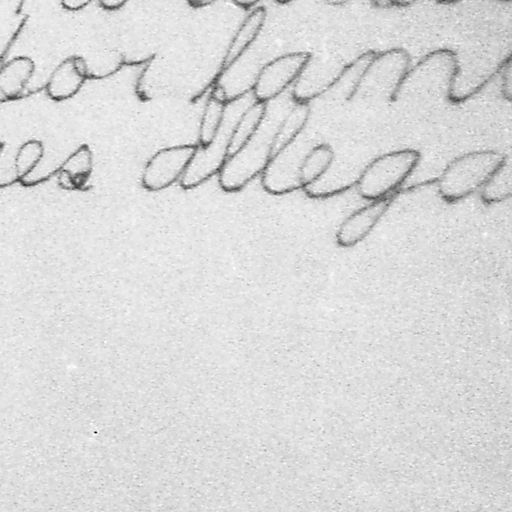 por fam
es allega